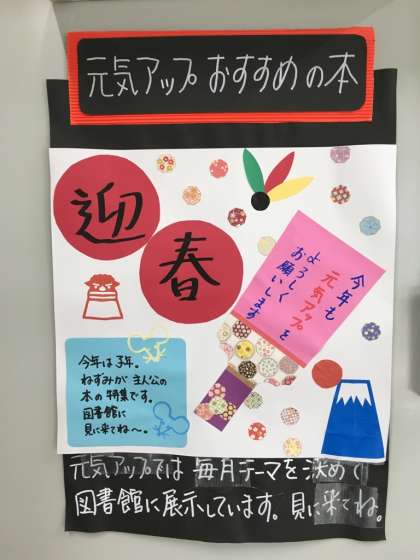 元気アップ おすすめの本
迎
春
今年も
元気アップを
よろしく
お願いします
今年は子年。
ねずみが主人公の
本の特集です。
図書館に
見に来てね〜。
元気アップでは 毎月テーマを決めて
図書館に展示しています。見に来てね。